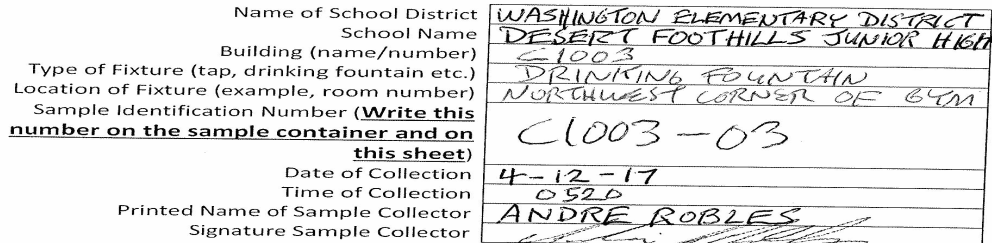 Name of School District WASHINGTON ELEMENTARY DISTRICT
School Name DESERT FOOTHILLS JUNIOR HIGH
Building (name/number) C1003
Type of Fixture (tap, drinking fountain etc.) DRINKING FOUNTAIN
Location of Fixture (example, room number) NORTHWEST CORNER OF GYM
Sample Identification Number (Write this
number on the sample container and on C1003-03
this sheet)
Date of Collection 4-12-17
Time of Collection 0520
Printed Name of Sample Collector ANDRE ROBLES
Signature Sample Collector